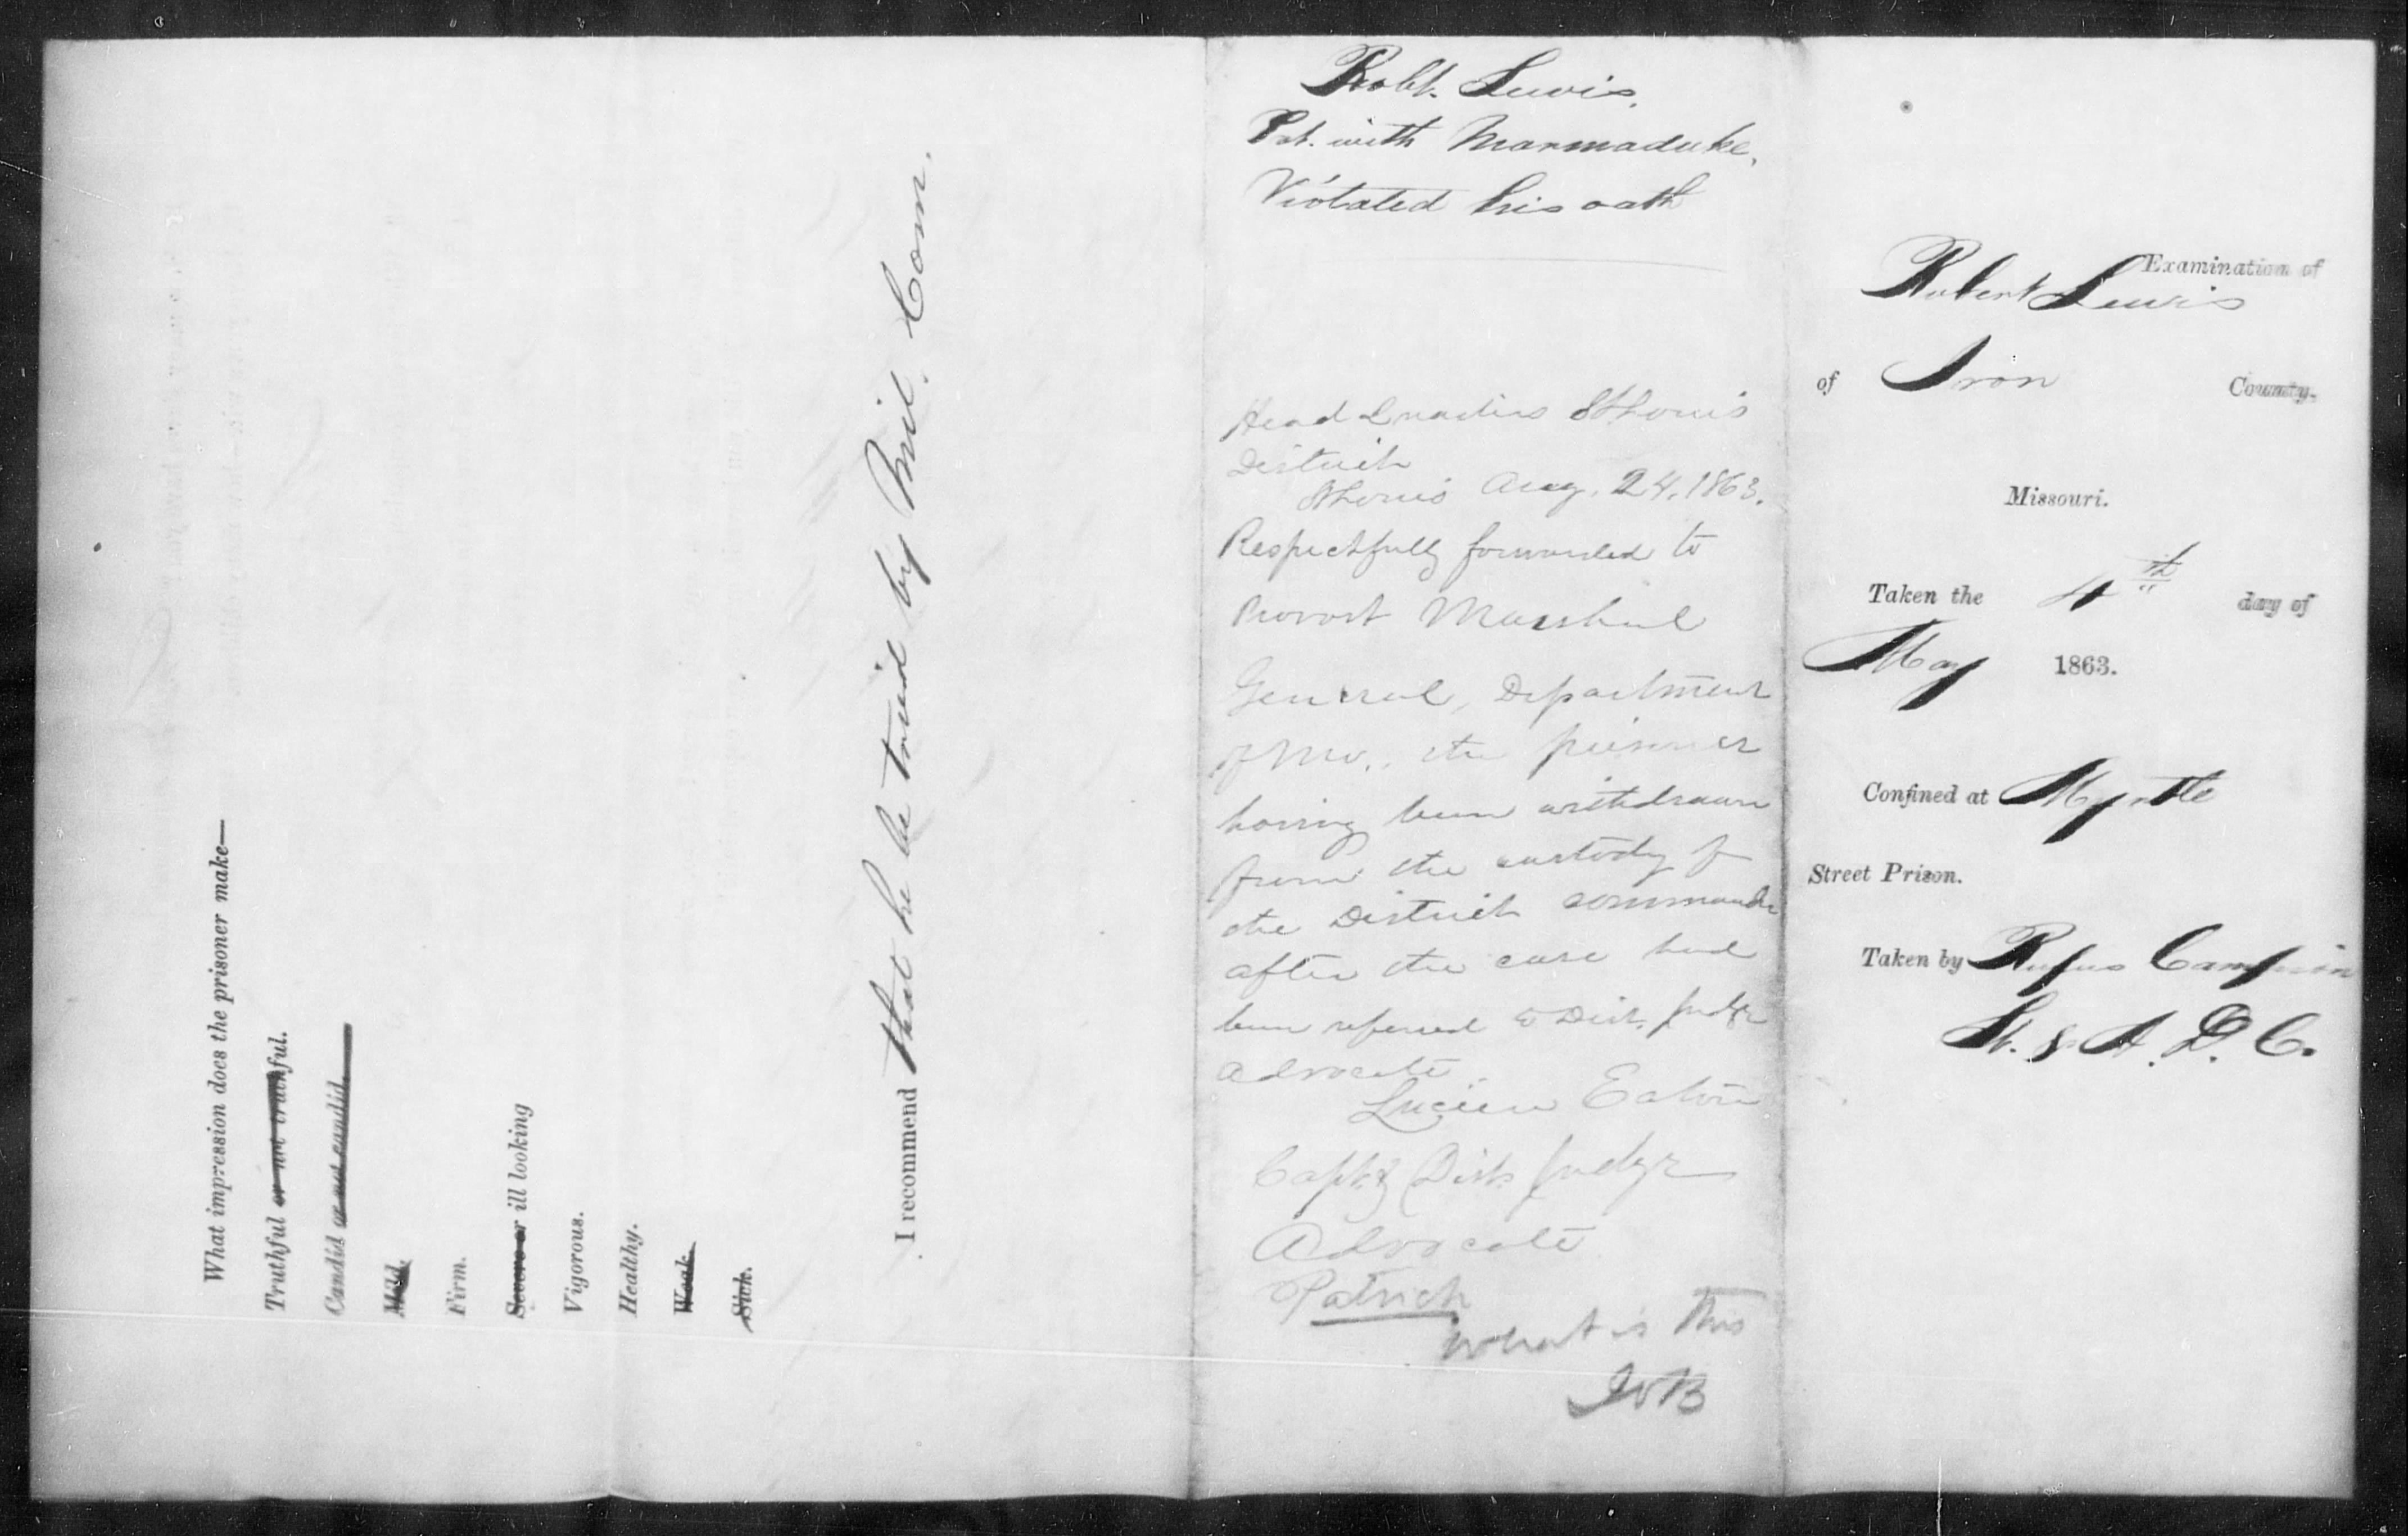 What impression does the prisoner make—
Truthful or not truthful.
Candid or not candid
Mild.
Firm.
Severe or ill looking
Vigorous.
Healthy.
Weak.
Sick.
I recommend that he be tried by Mil. Com.
Robt. Lewis,
Pvt. with Marmaduke,
Violated his oath
Head Quarters St Louis
District
St Louis Aug. 24, 1863.
Respectfully forwarded to
Provost Marshal
General, Department
of Mo., the prisoner
having been withdrawn
from the custody of
the District commander
after the case had
been referred to Dist. Judge
Advocate.
Lucien Eaton
Capt & Dist Judge
Advocate
Patrick
What is this
Examination of
Robert Lewis
of Iron County.
Missouri.
Taken the 4th day of
May 1863.
Confined at Myrtle
Street Prison.
Taken by Rufus Campion
Lt. & A. D. C.